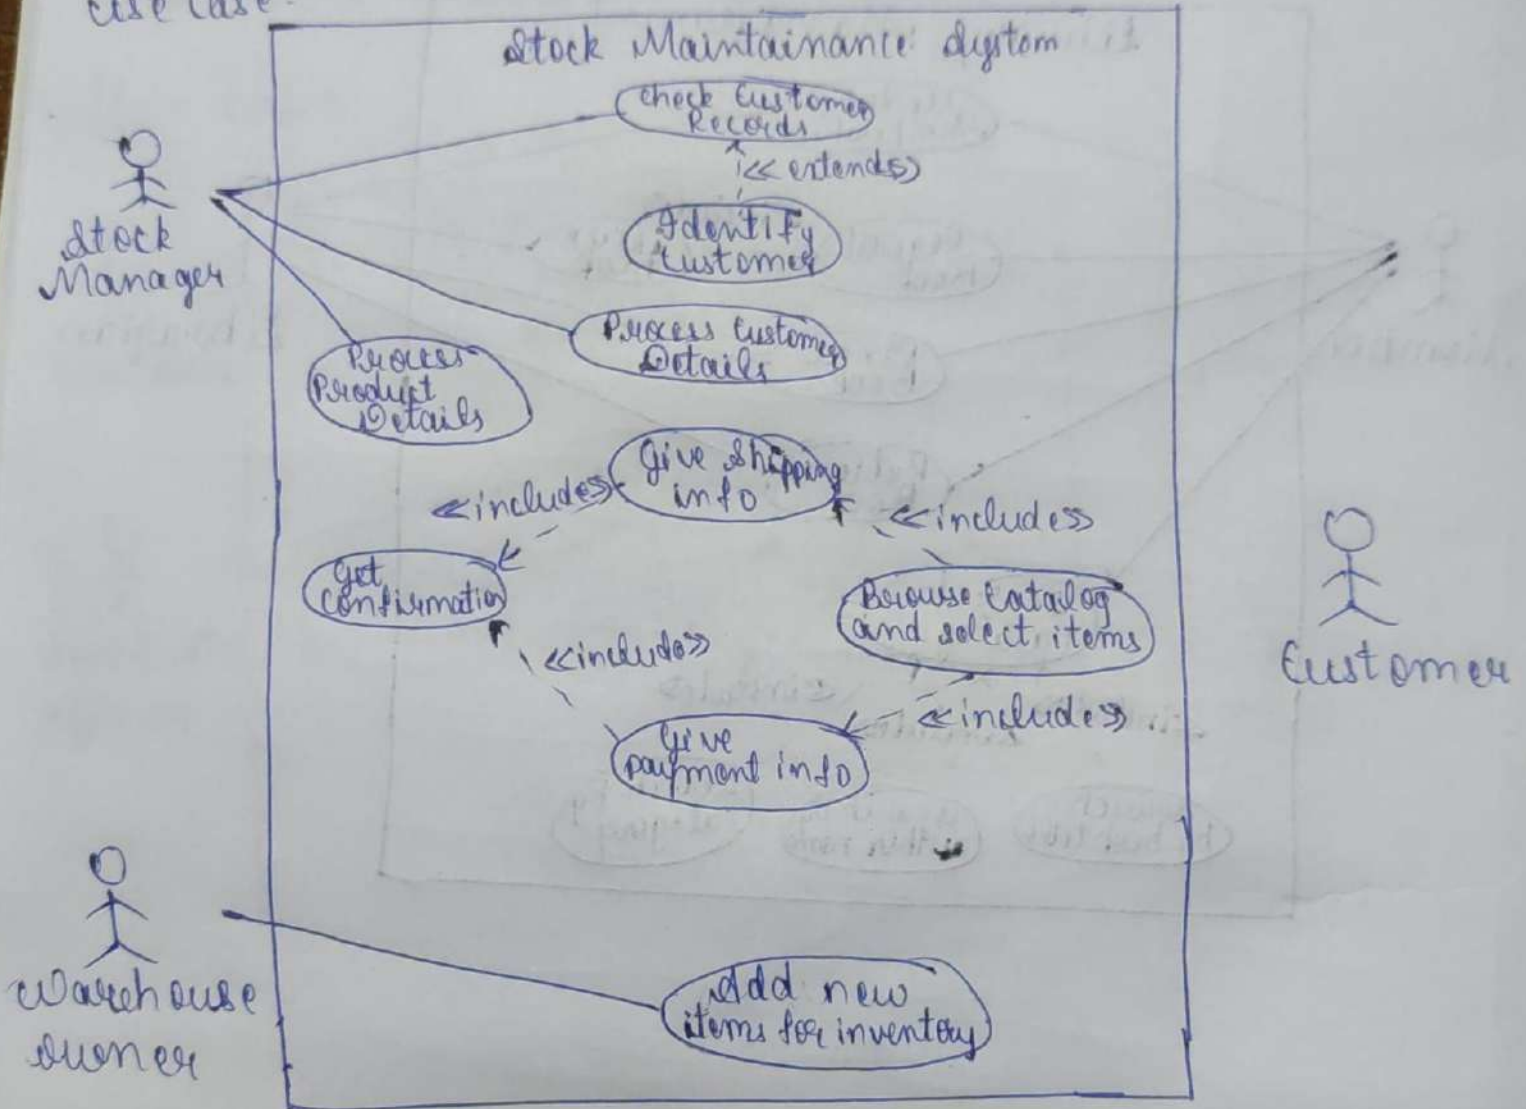 Use Case
Stock Maintainance System
Check Customer
Records
<<extends>>
Identify
Customer
Stock
Manager
Process Customer
Details
Process
Product
Details
Give Shipping
info
<<includes>>
<<includes>>
Get
Confirmation
Browse Catalog
and select items
<<includes>>
Customer
<<includes>>
Give
payment info
Warehouse
owner
Add new
items for inventory